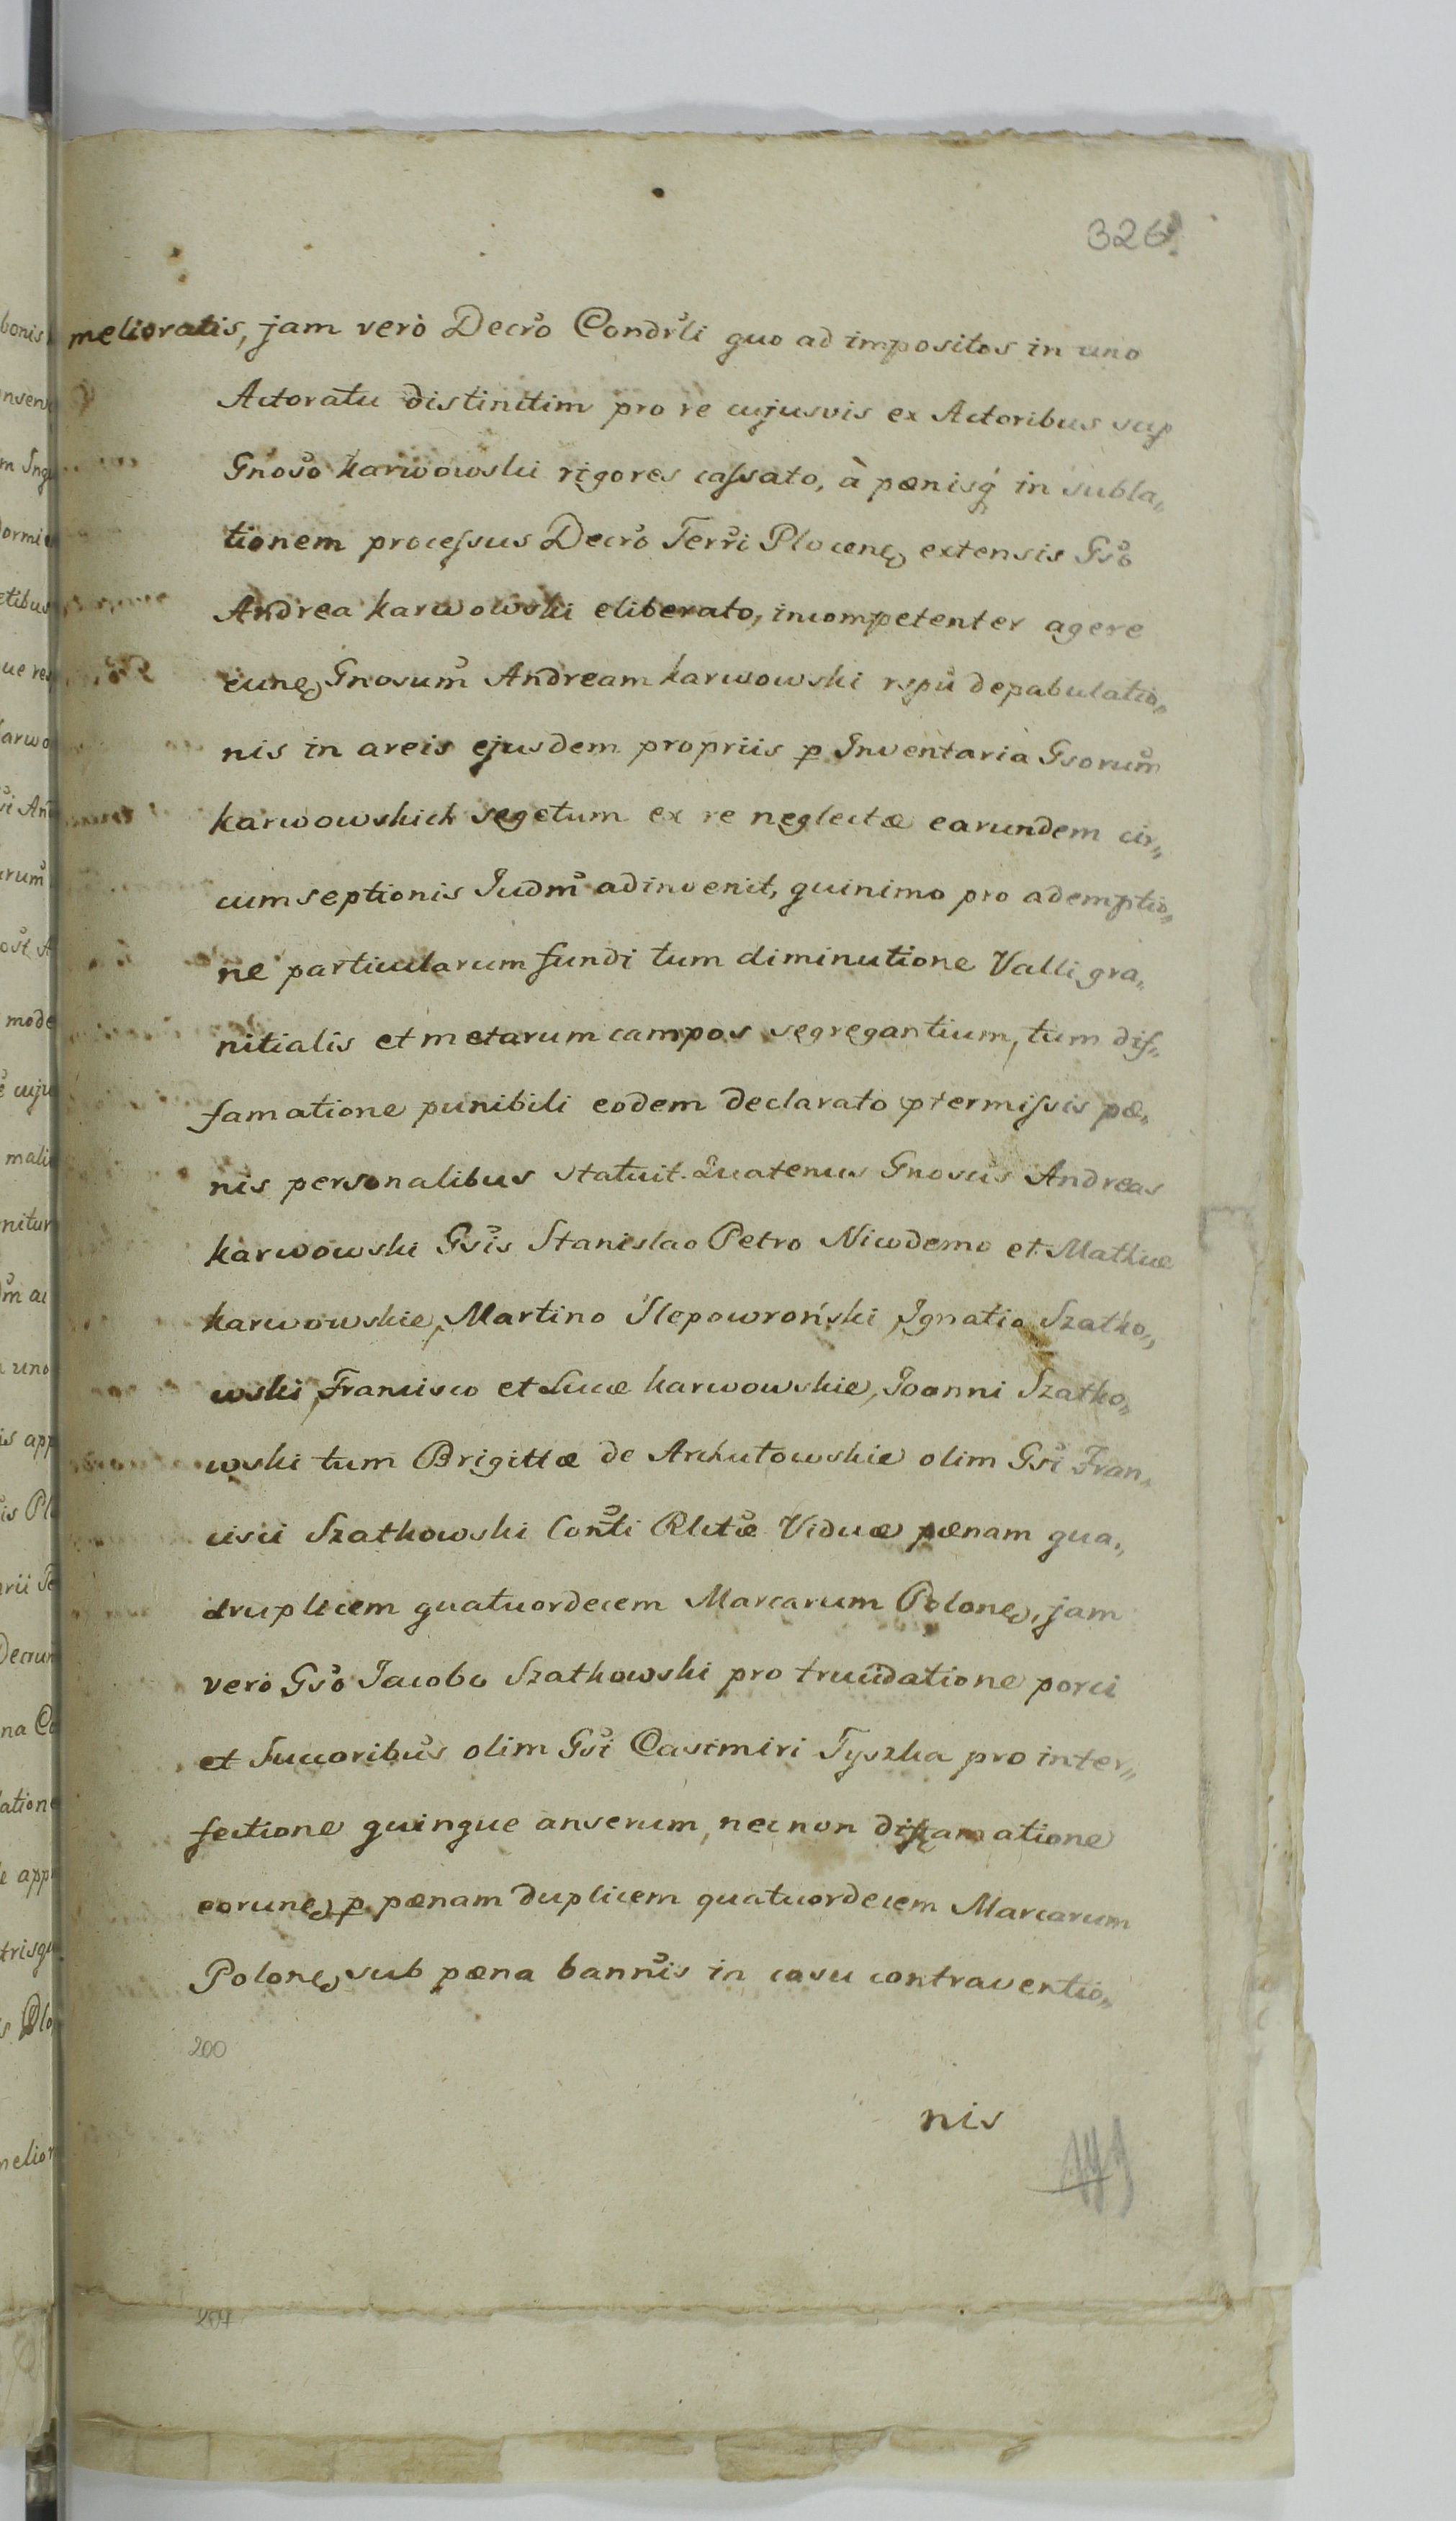 326
melioratis, jam verò Decr̃o Condr̃li quo ad impositos in uno
Actoratu distinctim pro re cujusvis ex Actoribus sup
Gnoso Karwowski rigores caſsato, à pœnisq́ in subla„
tionem proceſsus Decr̃o Terr̃i Plocenꝫ extensis Gs̃o
Andrea Karwowski eliberato, incompetenter agere
eunꝫ Gnosum̃ Andream Karwowski rspũ depabulatio„
nis in areis ejusdem propriis ꝑ Inventaria Gsorum̃
Karwowskich segetum ex re neglectæ earundem cir„
cumseptionis Judm̃ adinvenit, quinimo pro ademptio„
ne particularum fundi tum diminutione Valli gra„
nitialis et metarum campos segregantium, tum diſ„
famatione punibili eodem declarato ptermiſsis pœ„
nis personalibus statuit. Quatenus Gnosus̃ Andreas
Karwowski Gs̃is Stanislao Petro Nicodemo et Mathiæ
Karwowskie, Martino Slepowroński, Ignatio Szatko„
wski, Francisco et Lucæ Karwowskie, Joanni Szatko„
wski tum Brigittæ de Archutowskie olim Gs̃i Fran„
cisci Szatkowski Cons̃ti Rlctæ̃ Viduæ pœnam qua„
druplicem quatuordecem Marcarum Polonꝫ, jam
verò Gs̃o Jacobo Szatkowski pro trucidatione porci
et Succoribus̃ olim Gs̃i Casimiri Tyszka pro inter„
fectione quinque anserum, necnon diffamatione
eorunꝫ ꝑ pœnam duplicem quatuordecem Marcarum
Polonꝫ sub pœna bannĩs in casu contraventio„
200
nis
207